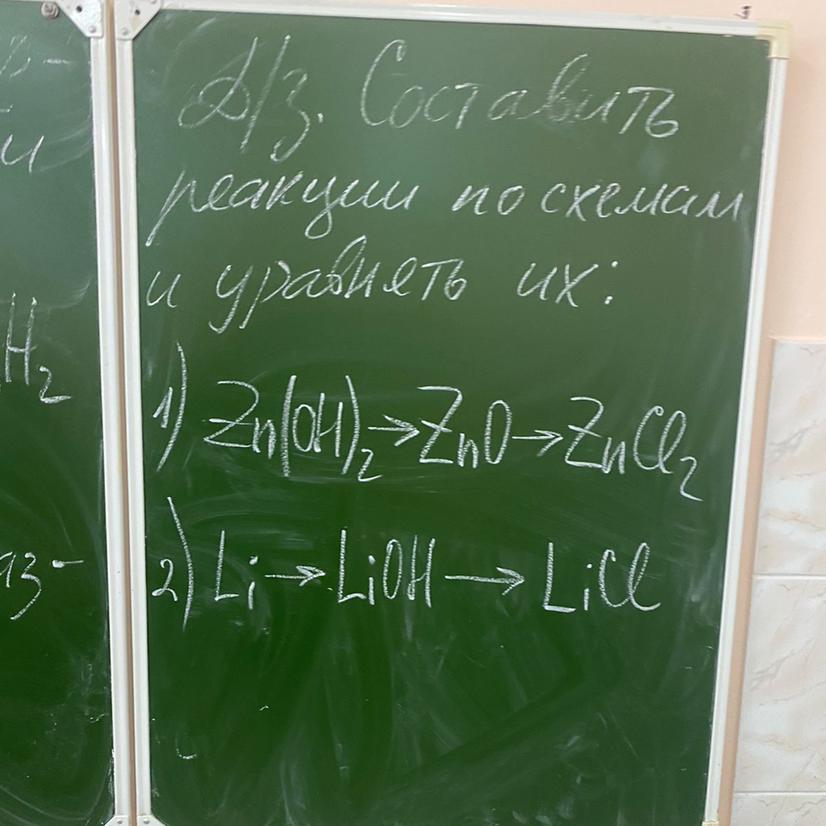 Д/з. Составить
реакции по схемам
и уравнять их:
1) Zn(OH)₂→ZnO→ZnCl₂
2) Li→LiOH→LiCl
и
H₂
аз-